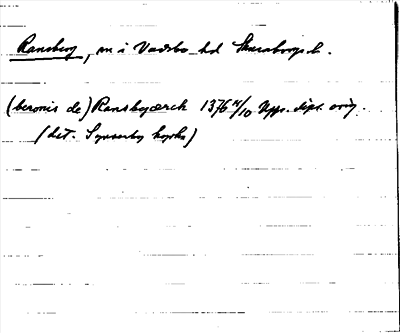 Ransberg, sn i Vadsbo hd Skaraborgs l.
(beronis de) Ransbgærch 1376 14/10 Upps. dipl. orig.
(dat. Synnerby kyrka)